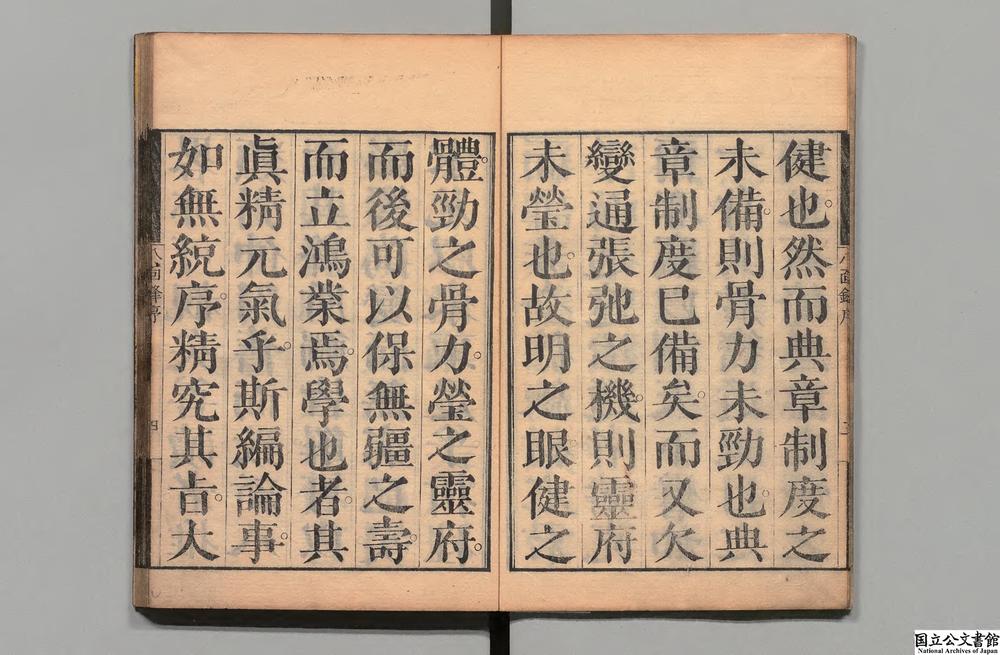 健也。然而典章制度之
未備。則骨力未勁也。典
章制度已備矣。而又欠
變通張弛之機。則靈府
未瑩也。故明之眼健之
體。勁之骨力。瑩之靈府。
而後可以保無疆之壽。
而立鴻業焉。學也者。其
眞精元氣乎。斯編論事。
如無統序。精究其㫖。大
八面鋒序
四
国立公文書館
National Archives of Japan